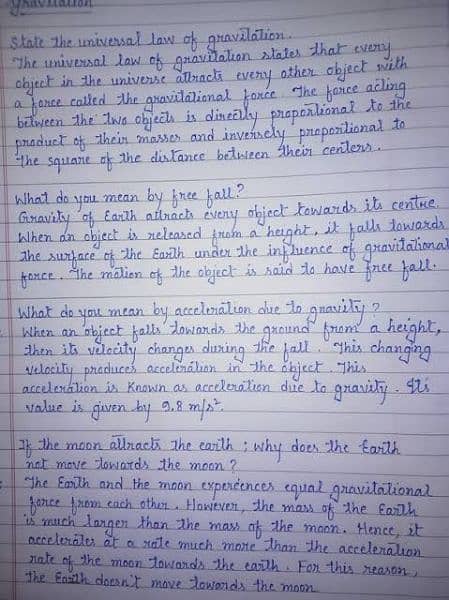 Gravitation
State the universal law of gravitation.
The universal law of gravitation states that every
object in the universe attracts every other object with
a force called the gravitational force. The force acting
between the two objects is directly proportional to the
product of their masses and inversely proportional to
the square of the distance between their centers.
What do you mean by free fall?
Gravity of Earth attracts every object towards its centre.
When an object is released from a height, it falls towards
the surface of the Earth under the influence of gravitational
force. The motion of the object is said to have free fall.
What do you mean by acceleration due to gravity?
When an object falls towards the ground from a height,
then its velocity changes during the fall. This changing
velocity produces acceleration in the object. This
acceleration is known as acceleration due to gravity. Its
value is given by 9.8 m/s².
If the moon attracts the earth; why does the Earth
not move towards the moon?
The Earth and the moon experences equal gravitational
force from each other. However, the mass of the Earth
is much larger than the mass of the moon. Hence, it
accelerates at a rate much more than the acceleration
rate of the moon towards the earth. For this reason,
the Earth doesn't move towards the moon